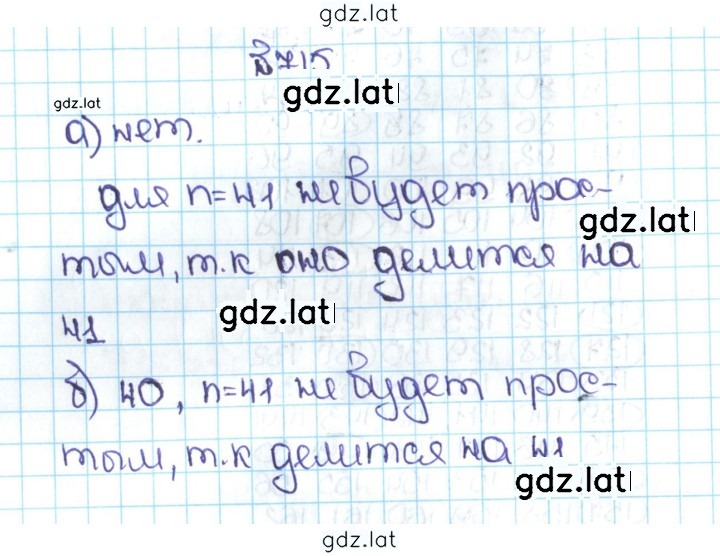 gdz.lat
gdz.lat
gdz.lat
а) нет.
для n=41 не будет прос-
gdz.lat
тым, т.к оно делится на
gdz.lat
41
б) 40, n=41 не будет прос-
тым, т.к делится на 41
gdz.lat
gdz.lat